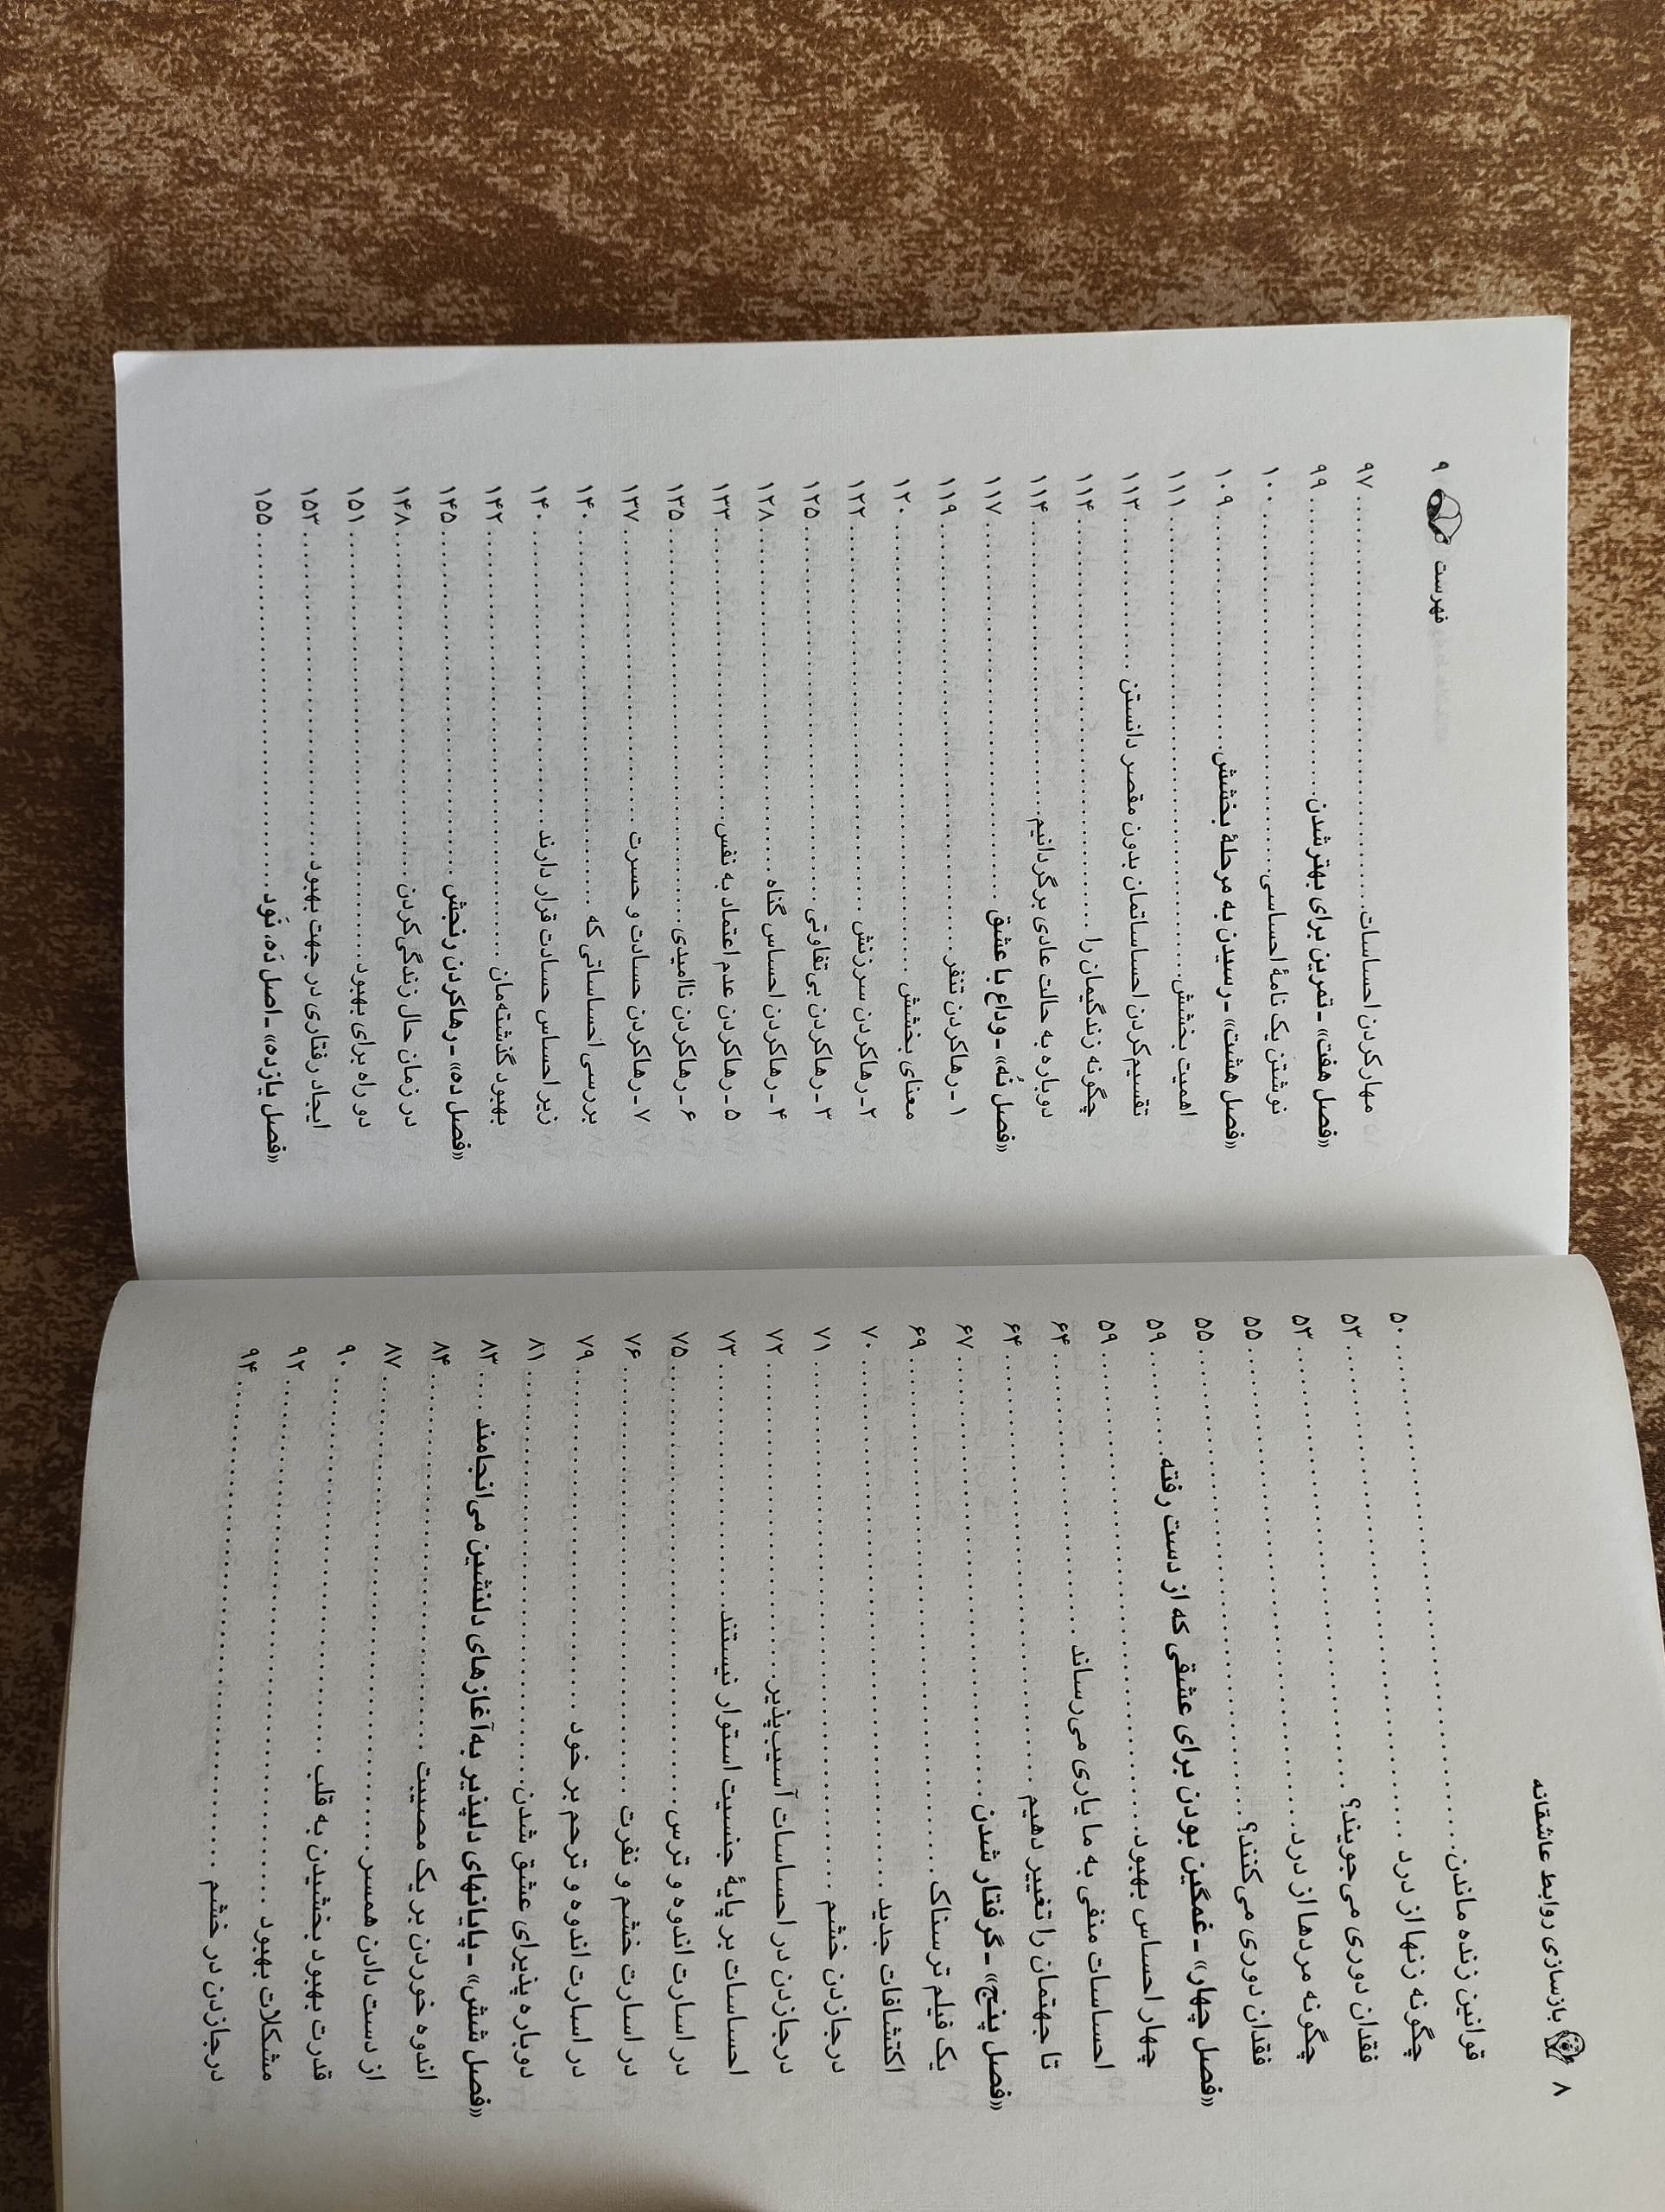 ۸ بازسازی روابط عاشقانه
قوانین زنده ماندن ........ ۵۰
چگونه زنها از درد ........ ۵۳
فقدان دوری می‌جویند؟ ........ ۵۳
چگونه مردها از درد ........ ۵۵
فقدان دوری می‌کنند؟ ........ ۵۵
«فصل چهار» ـ غمگین بودن برای عشقی که از دست رفته ........ ۵۹
چهار احساس بهبود ........ ۵۹
احساسات منفی به ما یاری می‌رساند ........ ۶۴
تا جهتمان را تغییر دهیم ........ ۶۴
«فصل پنج» ـ گرفتار شدن ........ ۶۷
یک فیلم ترسناک ........ ۶۹
اکتشافات جدید ........ ۷۰
درجازدن خشم ........ ۷۱
درجازدن در احساسات آسیب‌پذیر ........ ۷۲
احساسات بر پایهٔ جنسیت استوار نیستند ........ ۷۳
در اسارت اندوه و ترس ........ ۷۵
در اسارت خشم و نفرت ........ ۷۶
در اسارت اندوه و ترحم بر خود ........ ۷۹
دوباره پذیرای عشق شدن ........ ۸۱
«فصل شش» ـ پایانهای دلپذیر به آغازهای دلنشین می‌انجامند .... ۸۳
اندوه خوردن بر یک مصیبت ........ ۸۴
از دست دادن همسر ........ ۸۷
قدرت بهبود بخشیدن به قلب ........ ۹۰
مشکلات بهبود ........ ۹۲
درجازدن در خشم ........ ۹۴
فهرست ۹
مهار کردن احساسات ........ ۹۷
«فصل هفت» ـ تمرین برای بهتر شدن ........ ۹۹
نوشتن یک نامهٔ احساسی ........ ۱۰۰
«فصل هشت» ـ رسیدن به مرحلهٔ بخشش ........ ۱۰۹
اهمیت بخشش ........ ۱۱۱
تقسیم‌کردن احساساتمان بدون مقصر دانستن ........ ۱۱۳
چگونه زندگیمان را ........ ۱۱۴
دوباره به حالت عادی برگردانیم ........ ۱۱۴
«فصل نُه» ـ وداع با عشق ........ ۱۱۷
۱ ـ رهاکردن تنفر ........ ۱۱۹
معنای بخشش ........ ۱۲۰
۲ ـ رهاکردن سرزنش ........ ۱۲۲
۳ ـ رهاکردن بی‌تفاوتی ........ ۱۲۵
۴ ـ رهاکردن احساس گناه ........ ۱۲۸
۵ ـ رهاکردن عدم اعتماد به نفس ........ ۱۳۳
۶ ـ رهاکردن ناامیدی ........ ۱۳۵
۷ ـ رهاکردن حسادت و حسرت ........ ۱۳۷
بررسی احساساتی که ........ ۱۴۰
زیر احساس حسادت قرار دارند ........ ۱۴۰
بهبود گذشته‌مان ........ ۱۴۲
«فصل ده» ـ رهاکردن رنجش ........ ۱۴۵
در زمان حال زندگی‌کردن ........ ۱۴۸
دو راه برای بهبود ........ ۱۵۱
ایجاد رفتاری در جهت بهبود ........ ۱۵۳
«فصل یازده» ـ اصل دَه، نَود ........ ۱۵۵